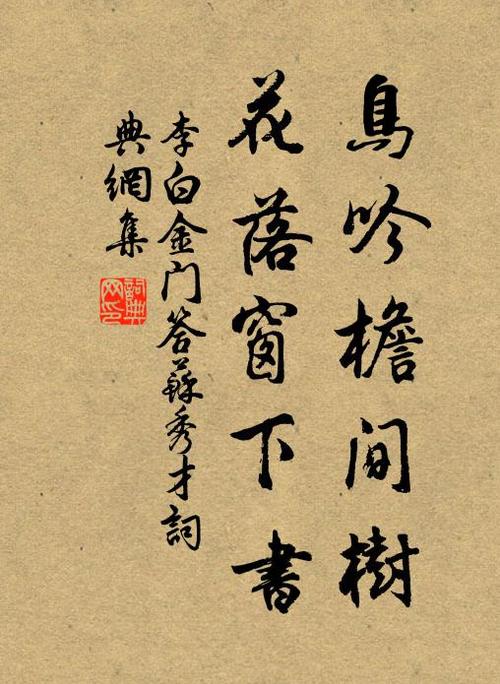 鳥吟檐間樹
花落窗下書
李白金门答蘇秀才詞
典網集
詞典网印